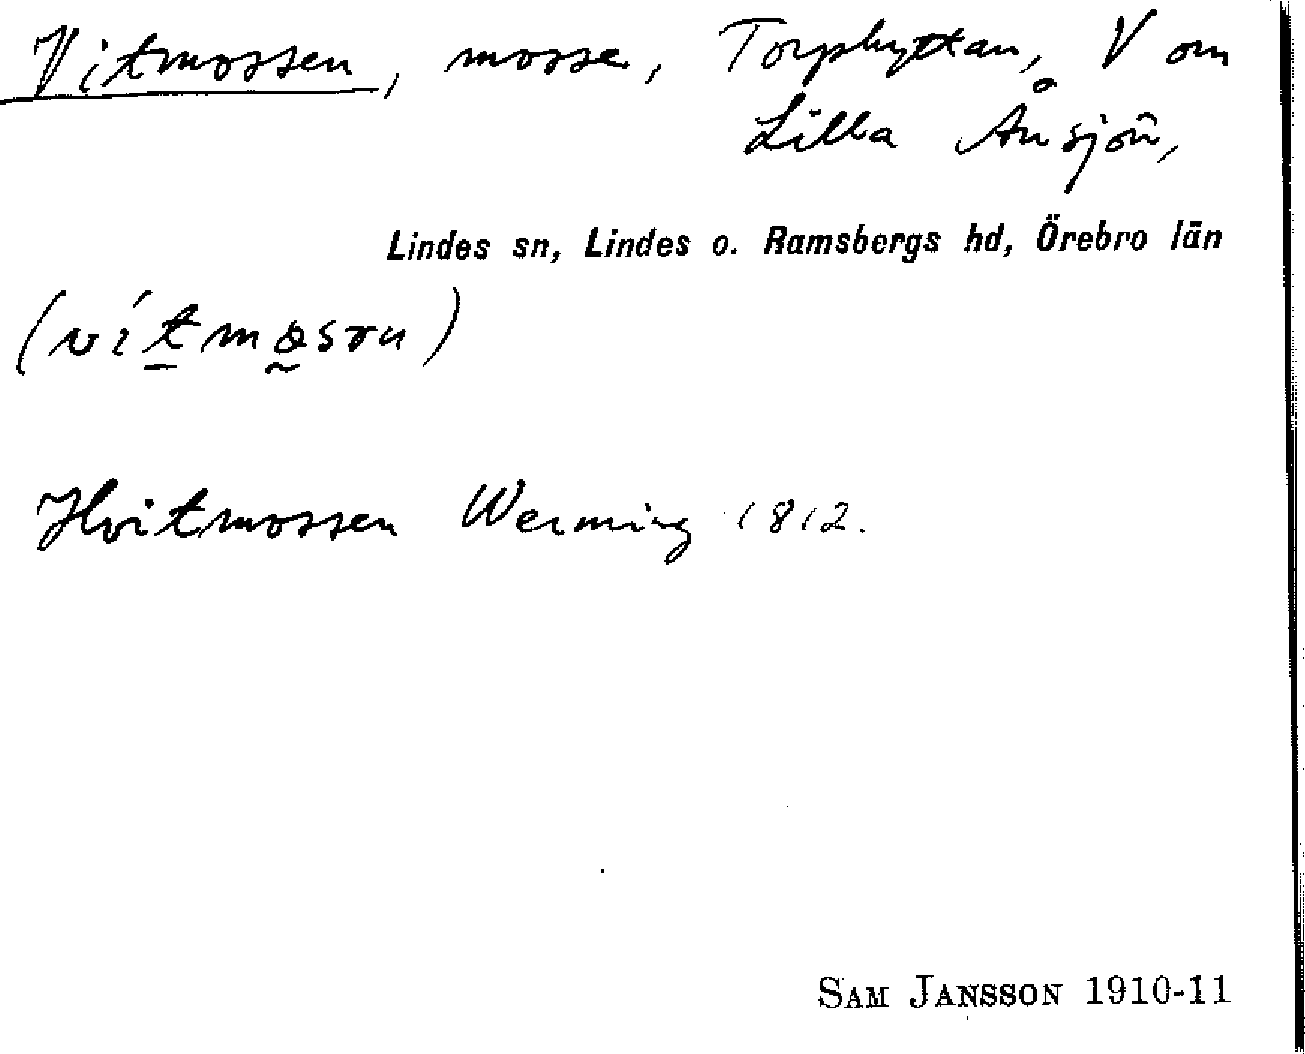 Vitmossen, mosse, Torphyttan, V om
Lilla Ånsjön,
Lindes sn, Lindes o. Ramsbergs hd, Örebro län
Hvitmossen Werming 1812.
SAM JANSSON 1910-11